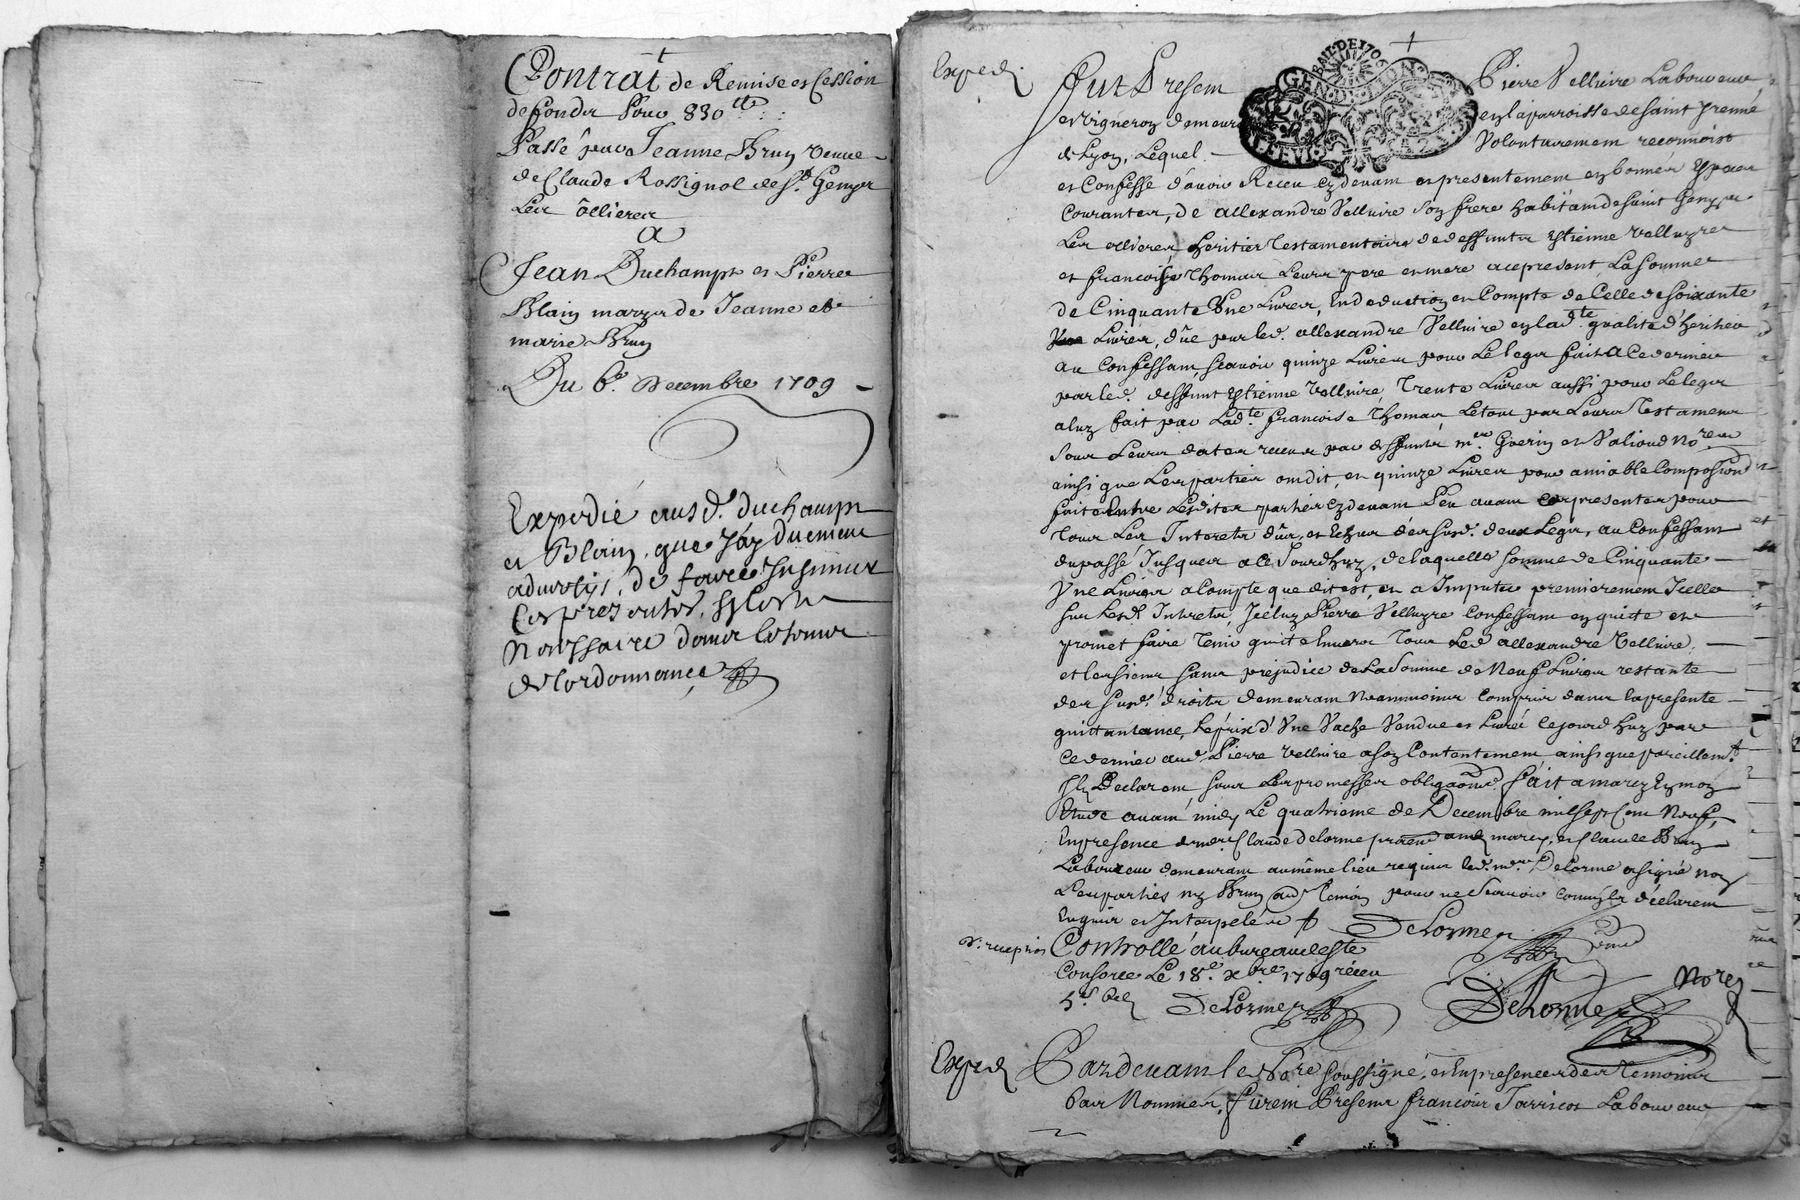 Contrat de Remise et Cession
de fonds Pour 830 tt
Passé par Jeanne Brun veuve
de Claude Rossignol de St. Genys
Les ôllieres
a
Jean Duchamp et Pierre
Blain marys de Jeanne et
marie Brun
Du 6e Decembre 1709
Expedié ausd. duchamp
et Blain, que j'ay duement
advertys, de faire Insinuer
Ces presentes,
dans le temps
de lordonnance
Exped.
Fut Present Pierre Velluire Laboureur
et vigneron demeurant en la parroisse de saint Irenné
de Lyon, Lequel Volontairement reconnoist
et Confesse d'avoir Receu cy devant et presentement en bonnes especes
Courantes, de allexandre Velluire son frere habitant de saint Genys
Les ollieres heritier testamentaire de deffunts Estienne velluyre
et francoise Thomas Leurs pere et mere acepresent, La somme
de Cinquante Une Livres, En deduction et Compte de Celle de soixante
Livres, dûe par led. allexandre Velluire en lad.te qualité d'heritier
au Confessant, scavoir quinze Livres pour Le legat fait a Ce dernier
par led. deffunt Estienne Velluire, Trente Livres aussi pour Le legat
a luy fait par Lad.te francoise Thomas Le tout par Leurs Testaments
sous Leurs dates receus par deffunts m.es Guerin et Valioud No.res
ainsi que Les parties ont dit, et quinze Livres pour amiable Composion
faite Entre Lesdites parties cy devant Peu avant Ces presentes pour
Tous Les Interets dûs, et Echus des susd. deux Legats, au Confessant
du passé Jusques a Ce Jourdhuy, de laquelle somme de Cinquante
Une Livres a Compte que dit est, et a Imputer premierement Icelle
sur Lesd. Interets, Jceluy Pierre Velluyre Confessant en quitte et
promet faire Tenir quitte Envers Tous Led. allexandre Velluire,
et les siens sans prejudice de La somme de Neuf Livres restante
des susd. droits demeurant Neanmoins Compris dans la presente
quittantance, Le prix d'Une Vache Vendue et Livrée Cejourdhuy par
Ce dernier aud. Pierre Velluire a son Contentement ainsi que pareillem.t
Ils Declarent sous Les promesses obligaons, fait a marcy En mon
Etude avant midy Le quatrieme de Decembre mil sept Cent Neuf,
En presence de m.re Claude delorme praen aud marcy, et Claude Brun
Laboureur demeurant au même lieu requis led. m.re Delorme a signé non
Les parties ny Brun aud. Temoin pour ne Scavoir comm'ils déclarent
Enquis et Interpelés
DeLorme
Controllé au bureau de Ste
Consorce Le 18e xbre 1709 receu
DeLorme
DeLorme Nore
Exped.
Pardevant le No.re soussigné, et En presence des Temoins
bas Nommés, furent Presents francois Jarricot Laboureur
GEN. DE LYON
BAIL DE 1706